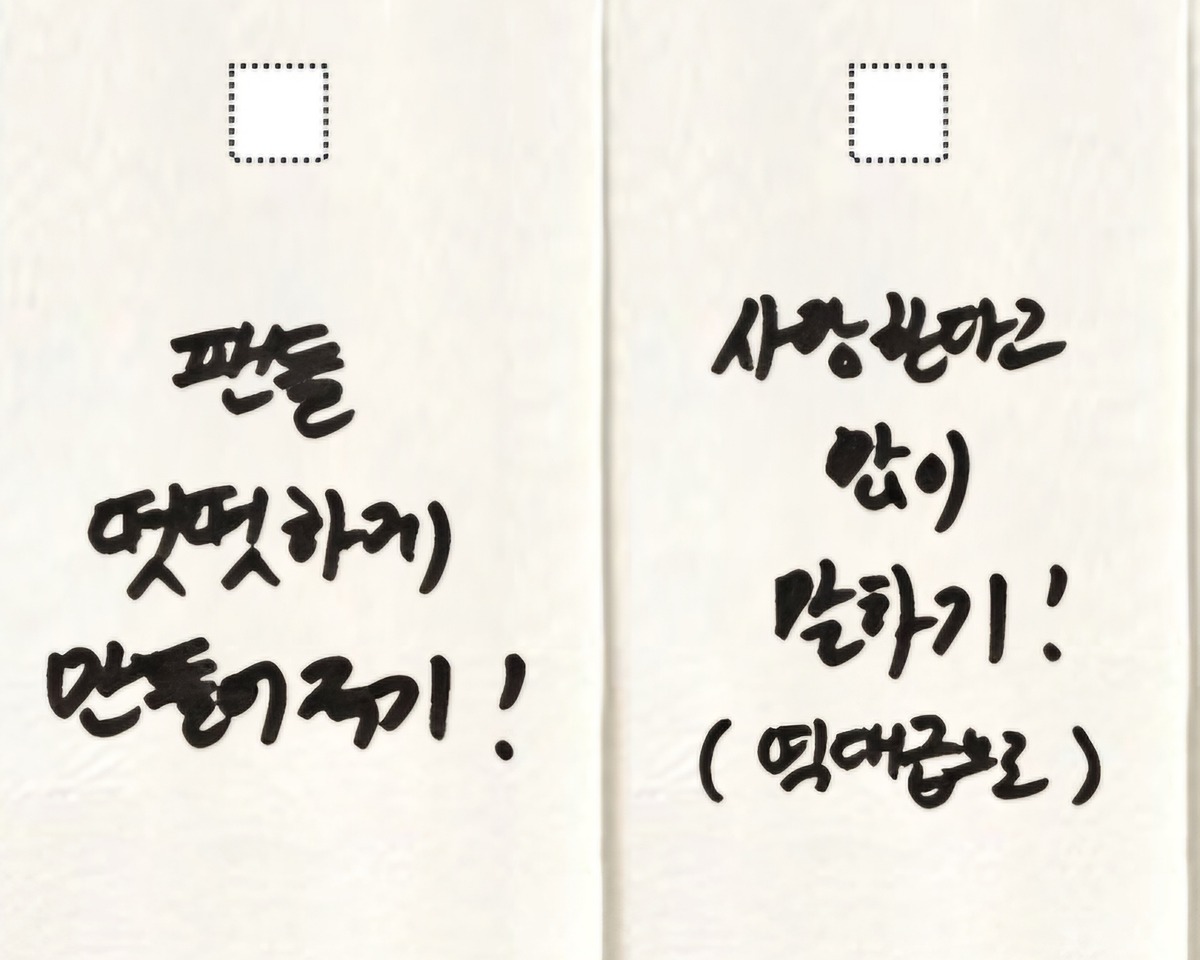 팬들
떳떳하게
만들어주기!
사랑한다고
많이
말하기!
(역대급으로)